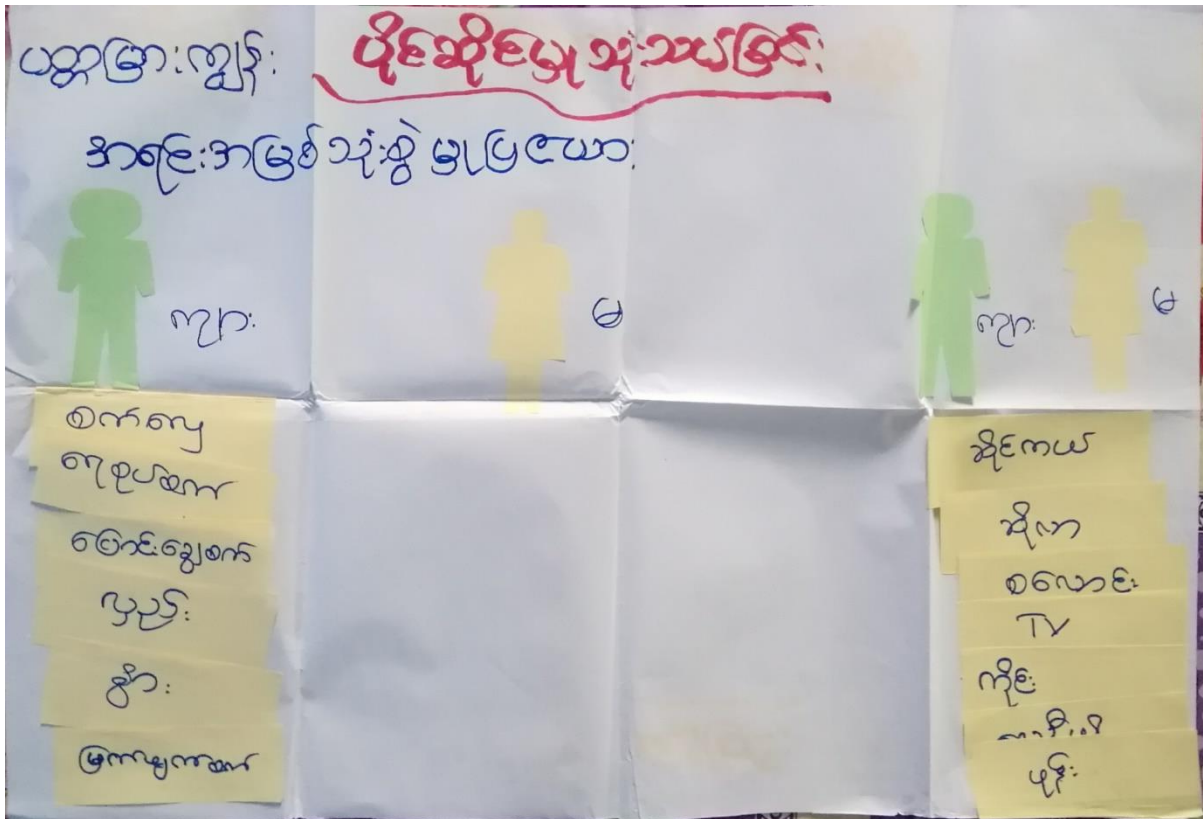 ပတ္တမြားကျွန်း ပိုင်ဆိုင်မှု သုံးသပ်ခြင်း
အရင်းအမြစ် သုံးစွဲမှုပြဇယား
ကျား မ ကျား မ
စက်လှေ
ရေစုပ်စက်
ပြောင်းချွေစက်
လှည်း
နွား
မြက်ဖျက်စက်
ဆိုင်ကယ်
ဆိုလာ
စလောင်း
TV
ကိုင်း
ဖုန်း